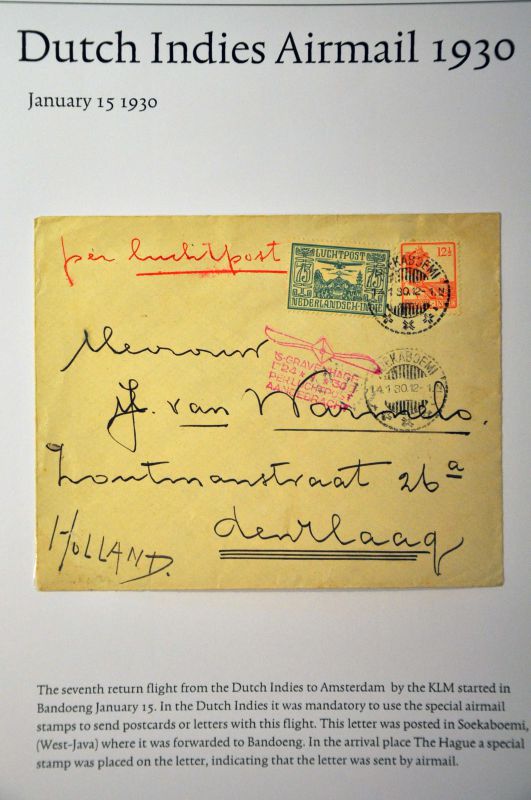 Dutch Indies Airmail 1930
January 15 1930
per luchtpost
LUCHTPOST
75 75
NEDERLANDSCH-INDIË
12½
SOEKABOEMI
14.1.30.12-1.N
'S-GRAVENHAGE
24 30
PER LUCHTPOST
AANGEBRACHT
SOEKABOEMI
14.1.30.12-1.N
Mevrouw
J. van Warmelo.
Houtmanstraat 26a
den Haag
HOLLAND.
The seventh return flight from the Dutch Indies to Amsterdam by the KLM started in
Bandoeng January 15. In the Dutch Indies it was mandatory to use the special airmail
stamps to send postcards or letters with this flight. This letter was posted in Soekaboemi,
(West-Java) where it was forwarded to Bandoeng. In the arrival place The Hague a special
stamp was placed on the letter, indicating that the letter was sent by airmail.